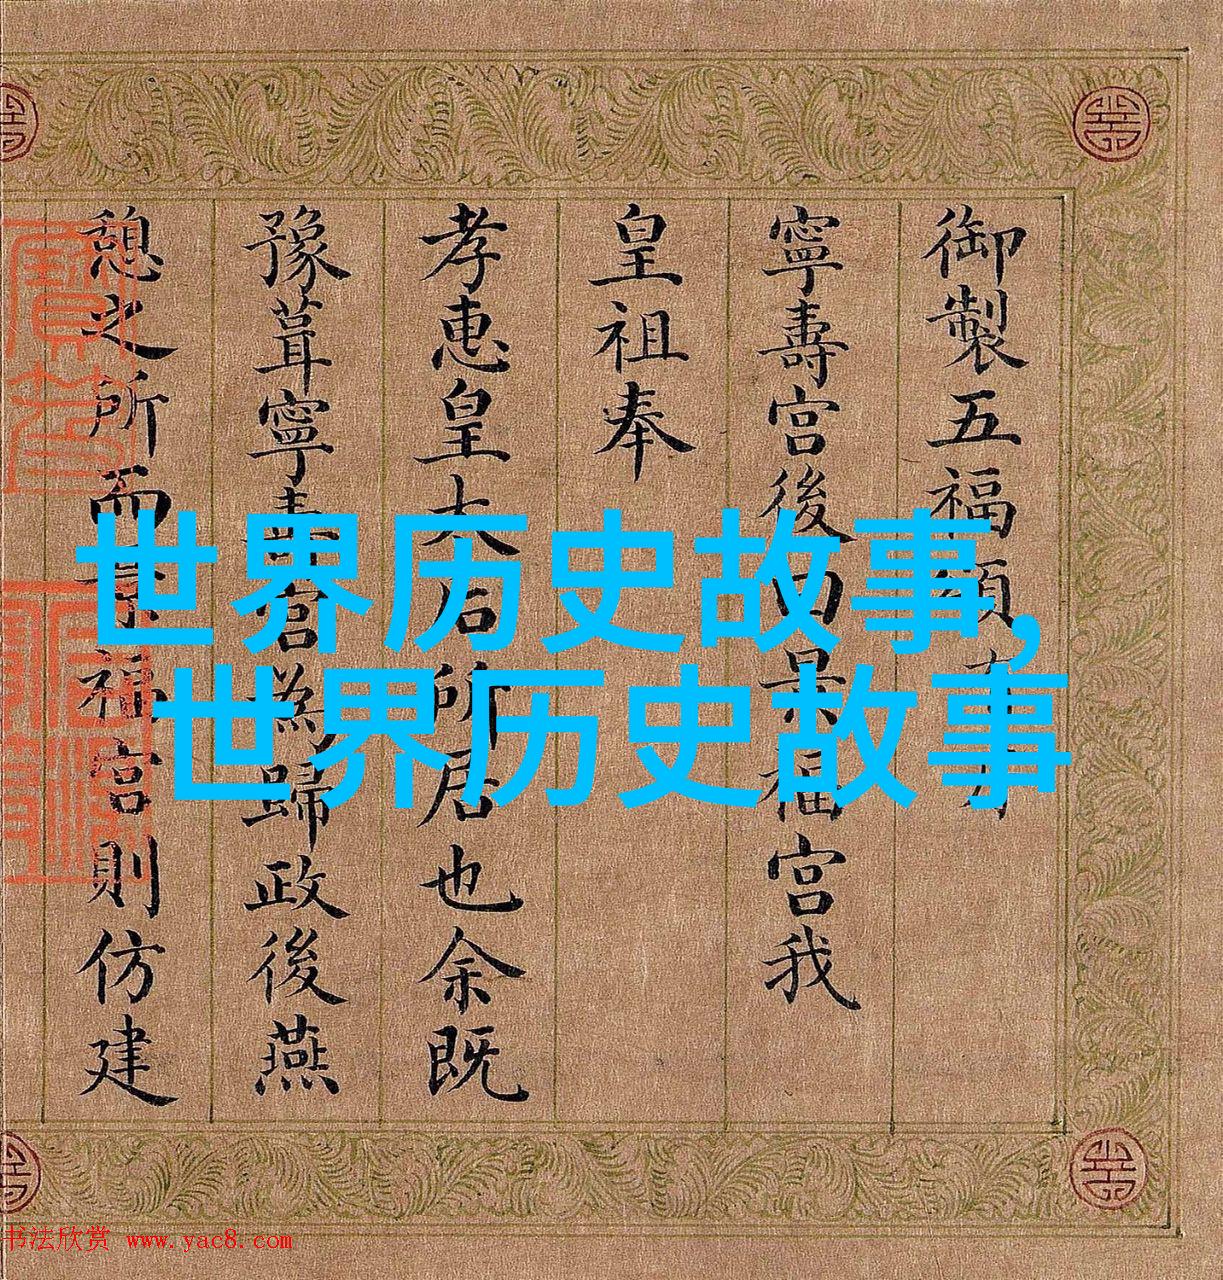 御製五福頌
寧壽宮後曰景福宮我
皇祖奉
孝惠皇太后所居也余既
豫葺寧壽宮為歸政後燕
憩之所而景福宮則仿建
世界历史故事,
世界历史故事
书法欣赏 www.yac8.com